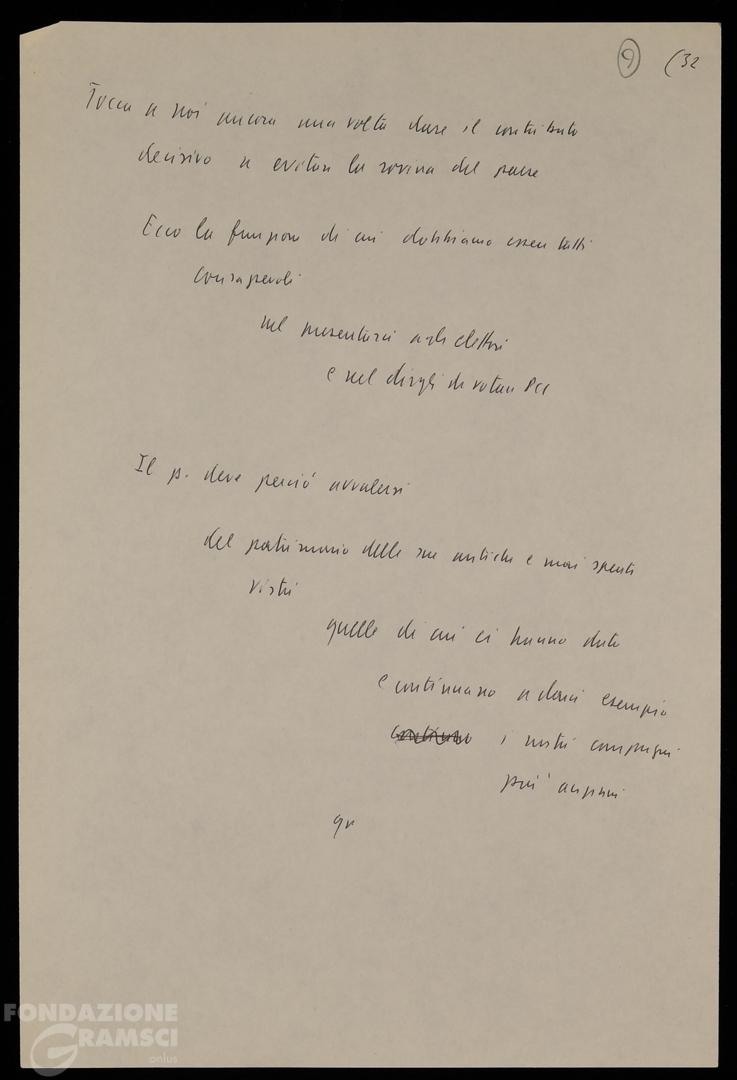 9 (32
Tocca a noi ancora una volta dare il contributo
decisivo a evitare la rovina del paese
Ecco la funzione di cui dobbiamo essere tutti
consapevoli
nel presentarci agli elettori
e nel dirgli di votare PCI
Il p. deve perciò avvalersi
del patrimonio delle sue antiche e mai spente
virtù
quelle di cui ci hanno dato
e continuano a darci esempio
i nostri compagni
più anziani
FONDAZIONE
GRAMSCI
onlus